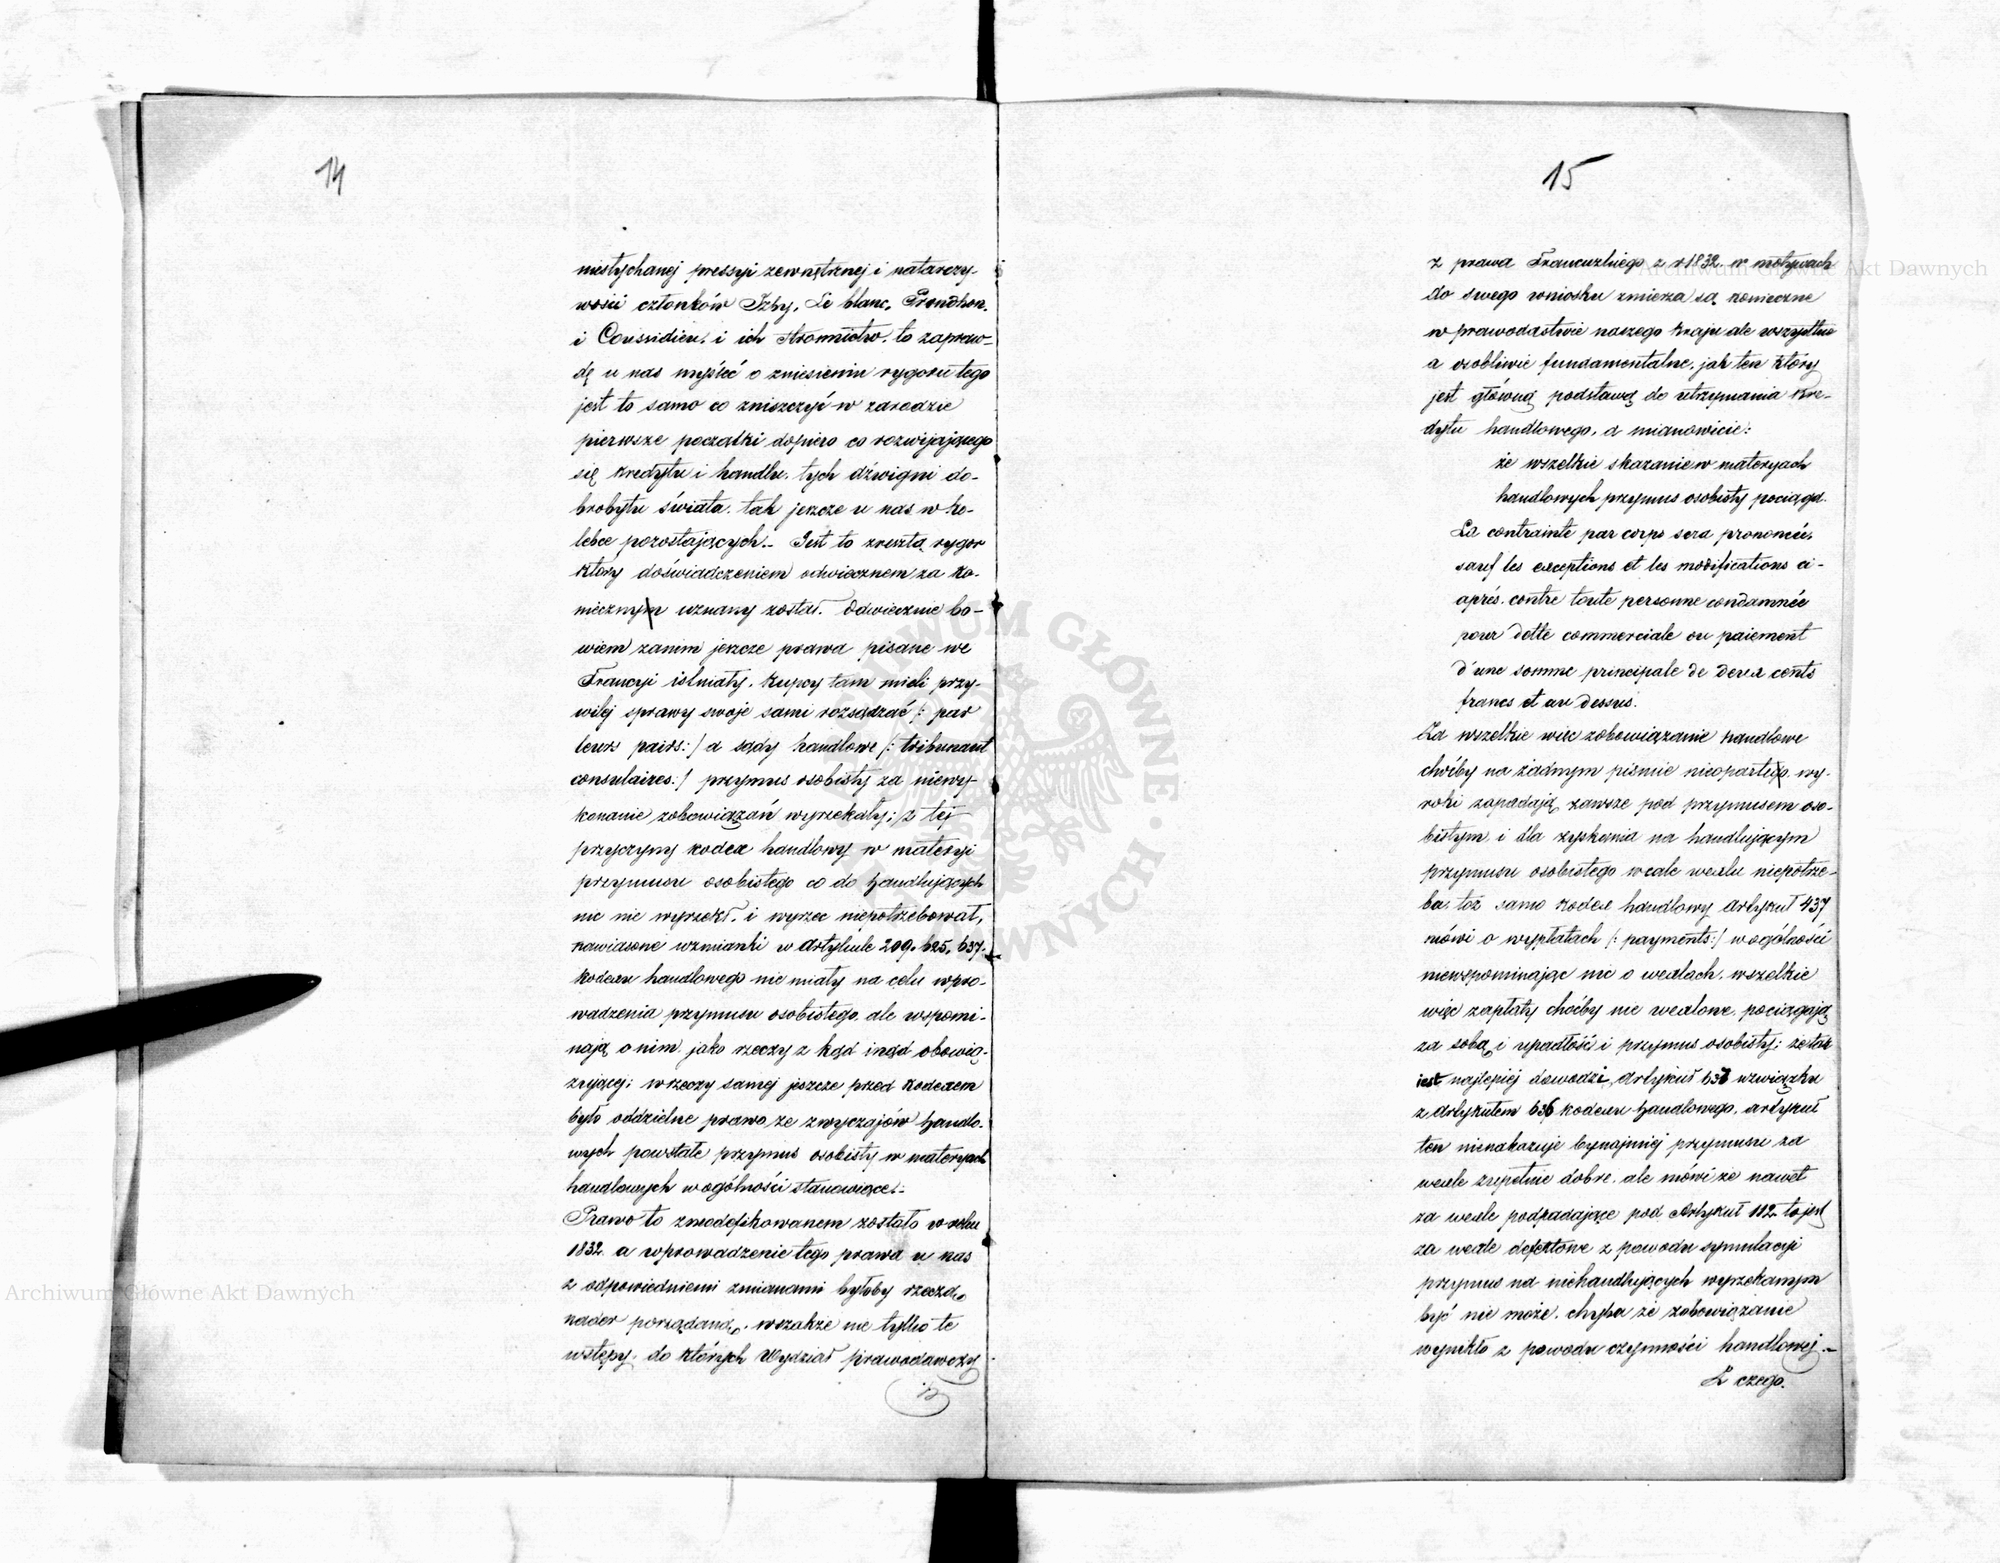 14
niesłychanej pressyi zewnętrznej i natarczy-
wości członków Izby, Le blanc, Proudhon,
i Conssidieu, i ich stronnictw, to zapraw-
dę u nas myśleć o zniesieniu rygoru tego
jest to samo co zniszczyć w zarodzie
pierwsze początki dopiero co rozwijającego
się kredytu i handlu, tych dźwigni do-
brobytu świata, tak jeszcze u nas w ko-
lebce pozostających.- Jest to zresztą rygor
który doświadczeniem odwiecznem za ko-
niecznym uznany został. Odwiecznie bo-
wiem zanim jeszcze prawa pisane we
Francyi istniały, kupcy tam mieli przy-
wilej sprawy swoje sami rozsądzać /: par
leurs pairs:/ a sądy handlowe /: tribunaux
consulaires:/ przymus osobisty za niewy-
konanie zobowiązań wyrzekały; z tej
przyczyny kodex handlowy w materyi
przymusu osobistego co do handlujących
nic nie wyrzekł, i wyrzec niepotrzebował,
nawiasowe wzmianki w artykule 209. 625. 637.
kodexu handlowego nie miały na celu wpro-
wadzenia przymusu osobistego, ale wspomi-
nają o nim, jako rzeczy z kąd inąd obowią-
zującej; w rzeczy samej jeszcze przed kodexem
było oddzielne prawo, ze zwyczajów handlo-
wych powstałe przymus osobisty w materyach
handlowych w ogólności stanowiące.-
Prawo to zmodefikowanem zostało w roku
1832. a wprowadzenie tego prawa u nas
z odpowiedniemi zmianami byłoby rzeczą
nader porządaną, wszakże nie tylko te
wstępy, do których Wydział prawodawczy
15
z prawa Francuzkiego z r 1832. w motywach
do swego wniosku zmierza są konieczne
w prawodastwie naszego kraju ale wszystkie
a osobliwie fundamentalne, jak ten który
jest główną podstawą do utrzymania kre-
dytu handlowego, a mianowicie:
że wszelkie skazanie w materyach
handlowych przymus osobisty pociąga.
La contrainte par corps sera prononcée,
sauf les exceptions et les modifications ci-
après, contre toute personne condamnée
pour dette commerciale ou paiement
d'une somme principale de deux cents
francs et au dessus.
Za wszelkie więc zobowiązanie handlowe
choćby na żadnym piśmie nieopartego, wy-
roki zapadają zawsze pod przymusem oso-
bistym, i dla zyskania na handlującym
przymusu osobistego wcale wexlu niepotrze-
ba, toż samo kodex handlowy Artykuł 437
mówi o wypłatach /: payments:/ w ogólności
niewspominając nic o wexlach, wszelkie
więc zapłaty choćby nie wexlowe, pociągają
za sobą i upadłość i przymus osobisty; że tak
jest najlepiej dowodzi artykuł 637 w związku
z artykułem 636 kodexu handlowego, artykuł
ten nienakazuje bynajmniej przymusu za
wexle zupełnie dobre, ale mówi że nawet
za wexle podpadające pod Artykuł 112. to jest
za wexle defektowe z powodu symulacyi
przymus na niehandlujących wyrzekanym
być nie może, chyba że zobowiązanie
wynikło z powodu czynności handlowej.-
Z czego.
Archiwum Główne Akt Dawnych